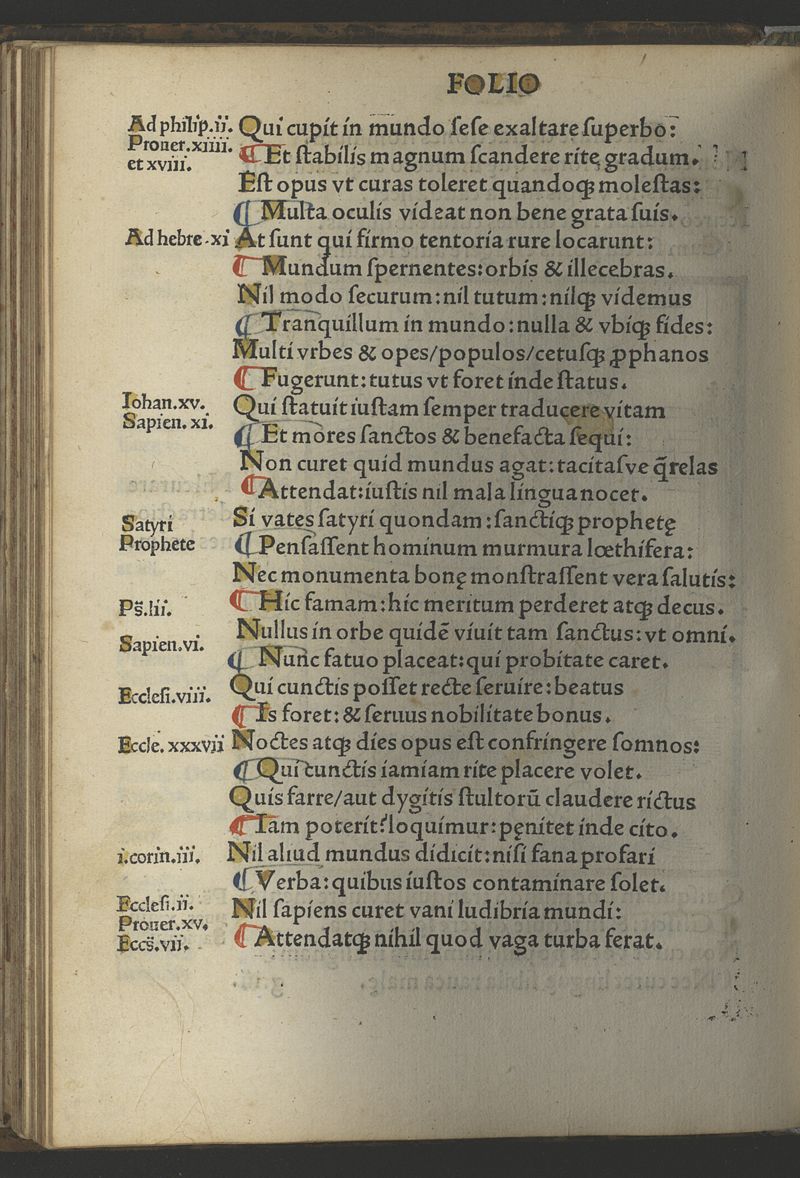 FOLIO
Ad philip.ii. Qui cupit in mundo ſeſe exaltare ſuperbo:
Prouer.xiiii. ¶ Et ſtabilis magnum ſcandere rite gradum.
et xviii.
Eſt opus vt curas toleret quandoqꝫ moleſtas:
¶ Multa oculis videat non bene grata ſuis.
Ad hebre.xi At ſunt qui firmo tentoria rure locarunt:
¶ Mundum ſpernentes:orbis & illecebras.
Nil modo ſecurum:nil tutum:nilqꝫ videmus
¶ Tranquillum in mundo:nulla & vbiqꝫ fides:
Multi vrbes & opes/populos/cetuſqꝫ ꝓphanos
¶ Fugerunt:tutus vt foret inde ſtatus.
Iohan.xv. Qui ſtatuit iuſtam ſemper traducere vitam
Sapien.xi. ¶ Et mores ſanctos & benefacta ſequi:
Non curet quid mundus agat:tacitaſve q̄relas
¶ Attendat:iuſtis nil mala lingua nocet.
Satyri Si vates ſatyri quondam:ſanctiqꝫ prophetę
Prophete ¶ Penſaſſent hominum murmura lœthifera:
Nec monumenta bonę monſtraſſent vera ſalutis:
Ps̄.lii. ¶ Hic famam:hic meritum perderet atqꝫ decus.
Nullus in orbe quidē viuit tam ſanctus:vt omni.
Sapien.vi. ¶ Nunc fatuo placeat:qui probitate caret.
Eccleſi.viii. Qui cunctis poſſet recte ſeruire:beatus
¶ Is foret:& ſeruus nobilitate bonus.
Eccle.xxxvii Noctes atqꝫ dies opus eſt confringere ſomnos:
¶ Qui cunctis iamiam rite placere volet.
Quis farre/aut dygitis ſtultorū claudere rictus
¶ Iam poterit?loquimur:pęnitet inde cito.
i.corin.iii. Nil aliud mundus didicit:niſi fana profari
¶ Verba:quibus iuſtos contaminare ſolet.
Eccleſi.ii. Nil ſapiens curet vani ludibria mundi:
Prouer.xv.
Eccs̄.vii. ¶ Attendatqꝫ nihil quod vaga turba ferat.